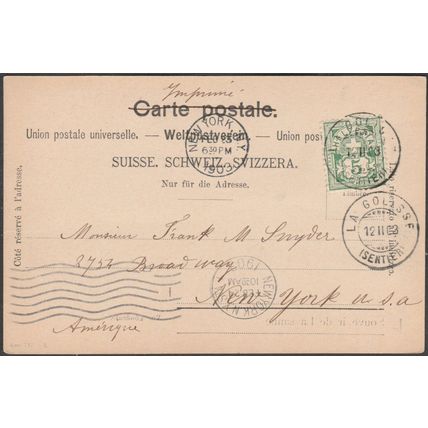 Imprimé
Carte postale.
Union postale universelle. — Weltpostverein. — Unione pos
SUISSE. SCHWEIZ. SVIZZERA.
Nur für die Adresse.
Côté réservé à l'adresse.
NEW YORK, N.Y.
FEB 23
630PM
1903
5
LA GOLISSE
12 II 03
(SENTIER)
Monsieur Frank M Snyder
2752 Broadway
New York u.s.a
Amérique
NEW YORK, N.Y.
1030PM
190